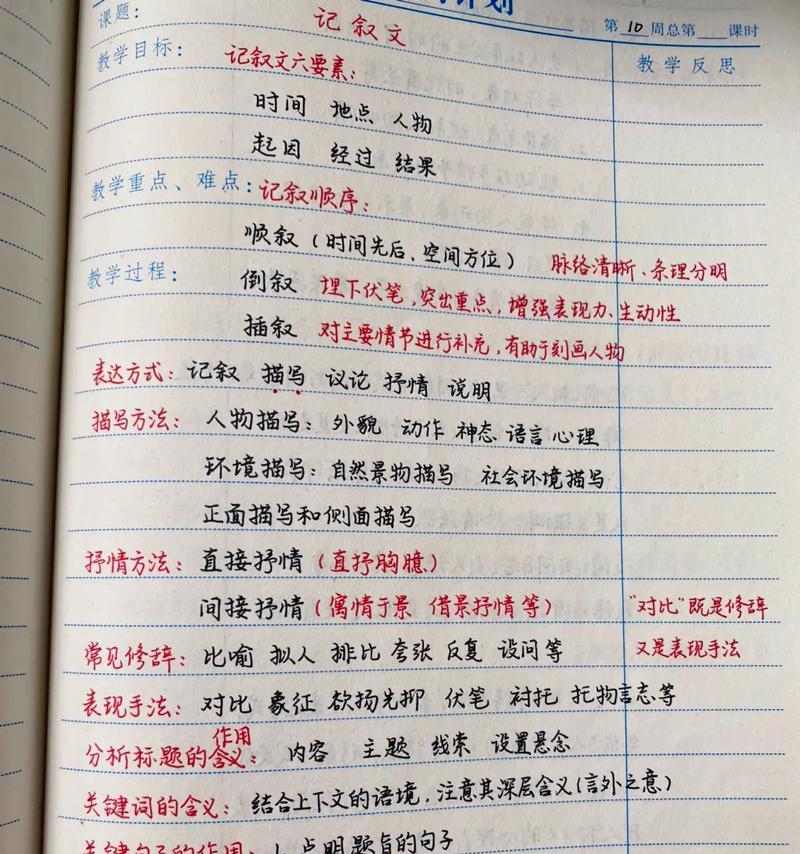 计划
课题： 记叙文 第10周总第 课时
教学目标： 记叙文六要素： 教学反思
时间 地点 人物
起因 经过 结果
教学重点、难点： 记叙顺序：
顺叙（时间先后、空间方位） 脉络清晰、条理分明
教学过程： 倒叙 埋下伏笔，突出重点，增强表现力、生动性
插叙 对主要情节进行补充，有助于刻画人物
表达方式： 记叙 描写 议论 抒情 说明
描写方法： 人物描写：外貌 动作 神态 语言 心理
环境描写：自然景物描写 社会环境描写
正面描写和侧面描写
抒情方法： 直接抒情（直抒胸臆）
间接抒情（寓情于景 借景抒情 等） "对比"既是修辞
常见修辞： 比喻 拟人 排比 夸张 反复 设问 等 又是表现手法
表现手法： 对比 象征 欲扬先抑 伏笔 衬托 托物言志 等
作用
分析标题的含义： 内容 主题 线索 设置悬念
关键词的含义： 结合上下文的语境，注意其深层含义（言外之意）
关键句子的作用： 1、点明题旨的句子